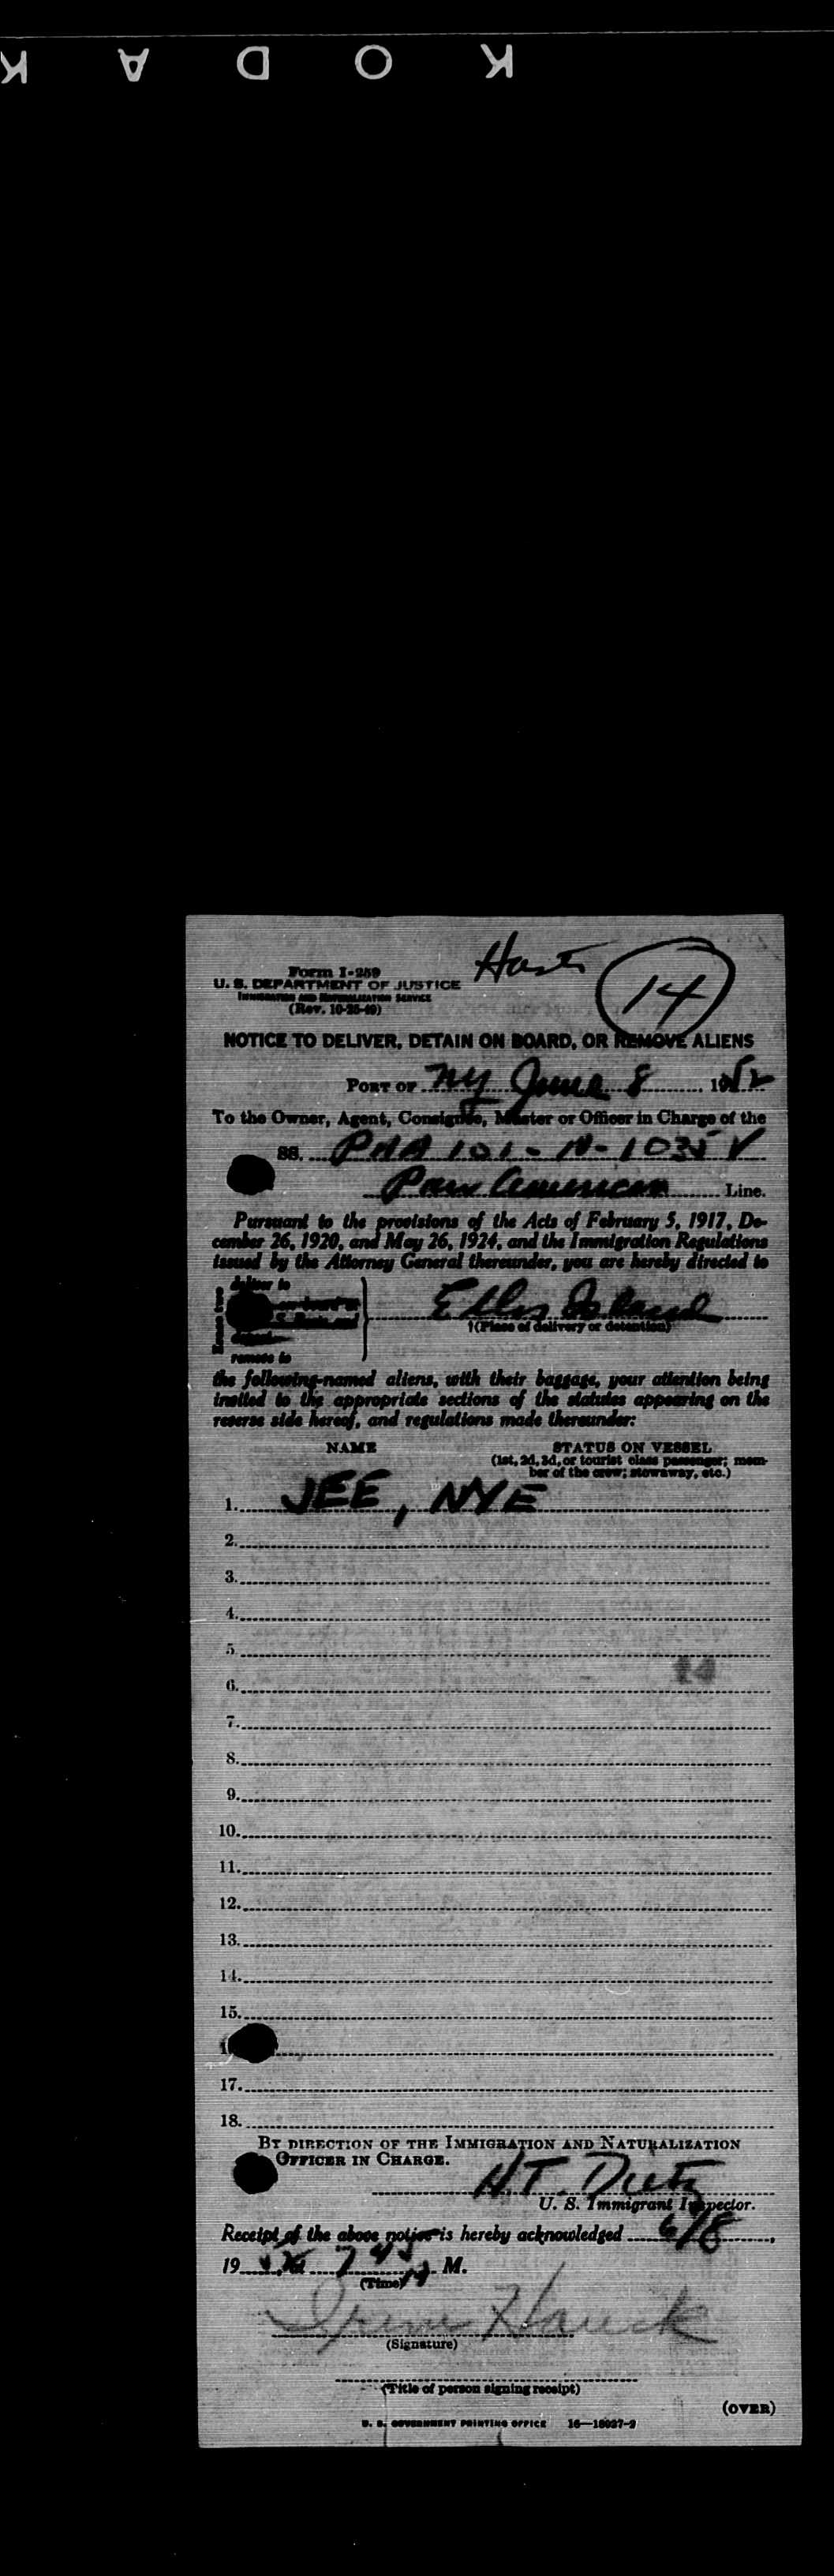 KODAK
Form I-259
U. S. DEPARTMENT OF JUSTICE
IMMIGRATION AND NATURALIZATION SERVICE
(Rev. 10-25-49)
14
NOTICE TO DELIVER, DETAIN ON BOARD, OR REMOVE ALIENS
PORT OF NY June 8 1952
To the Owner, Agent, Consignee, Master or Officer in Charge of the
SS. PAA 101 - N-1035 V
Pan American Line.
Pursuant to the provisions of the Acts of February 5, 1917, De-
cember 26, 1920, and May 26, 1924, and the Immigration Regulations
issued by the Attorney General thereunder, you are hereby directed to
deliver to
Ellis Island
†(Place of delivery or detention)
remove to
the following-named aliens, with their baggage, your attention being
invited to the appropriate sections of the statutes appearing on the
reverse side hereof, and regulations made thereunder:
NAME STATUS ON VESSEL
(1st, 2d, 3d, or tourist class passenger; mem-
ber of the crew; stowaway, etc.)
1. JEE, NYE
2.
3.
4.
5.
6.
7.
8.
9.
10.
11.
12.
13.
14.
15.
17.
18.
BY DIRECTION OF THE IMMIGRATION AND NATURALIZATION
OFFICER IN CHARGE.
H.T. Dietz
U. S. Immigrant Inspector.
Receipt of the above notice is hereby acknowledged 6/8,
19 7 45 M.
(Time)
Hauck
(Signature)
(Title of person signing receipt)
(OVER)
U. S. GOVERNMENT PRINTING OFFICE 16—18027-2